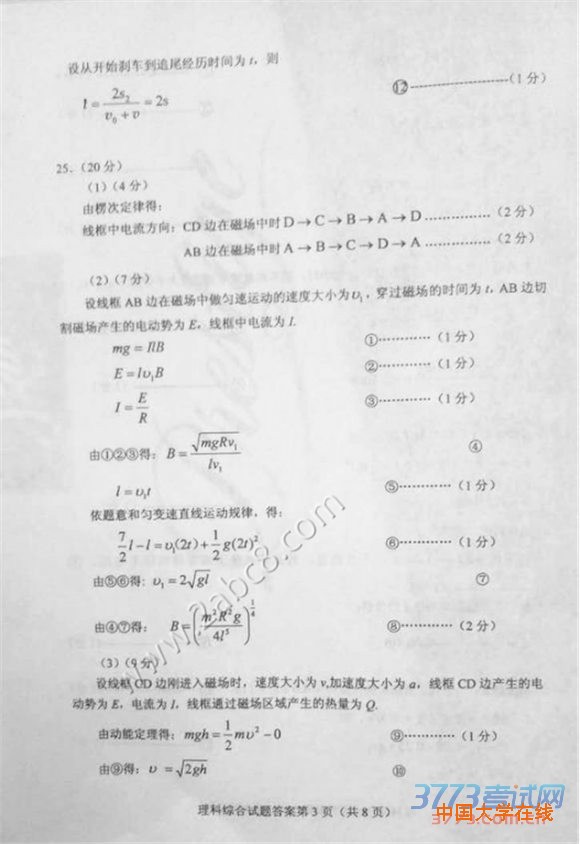 设从开始刹车到追尾经历时间为 t，则
l = 2s₂/(υ₀+υ) = 2s ⑫……………(1 分)
25.（20 分）
（1）(4 分)
由楞次定律得：
线框中电流方向：CD 边在磁场中时 D→C→B→A→D ……………（2 分）
AB 边在磁场中时 A→B→C→D→A ……………（2 分）
（2）(7 分)
设线框 AB 边在磁场中做匀速运动的速度大小为υ₁，穿过磁场的时间为 t，AB 边切
割磁场产生的电动势为 E，线框中电流为 I.
mg = IlB ①…………（1 分）
E = lυ₁B ②…………（1 分）
I = E/R ③…………（1 分）
由①②③得：B = √(mgRv₁)/(lv₁) ④
l = υ₁t ⑤…………（1 分）
依题意和匀变速直线运动规律，得：
7/2 l - l = υ₁(2t) + 1/2 g(2t)²， ⑥…………（1 分）
由⑤⑥得：υ₁ = 2√(gl) ⑦
由④⑦得： B = (m²R²g/4l⁵)^(1/4) ⑧…………（2 分）
（3）(9 分)
设线框 CD 边刚进入磁场时，速度大小为 v,加速度大小为 a，线框 CD 边产生的电
动势为 E，电流为 I，线框通过磁场区域产生的热量为 Q.
由动能定理得：mgh = 1/2 mυ² - 0 ⑨…………（1 分）
由⑨得：υ = √(2gh) ⑩
理科综合试题答案第 3 页（共 8 页）
www.2abc8.com
3773考试网
中国大学在线
3773.com.cn